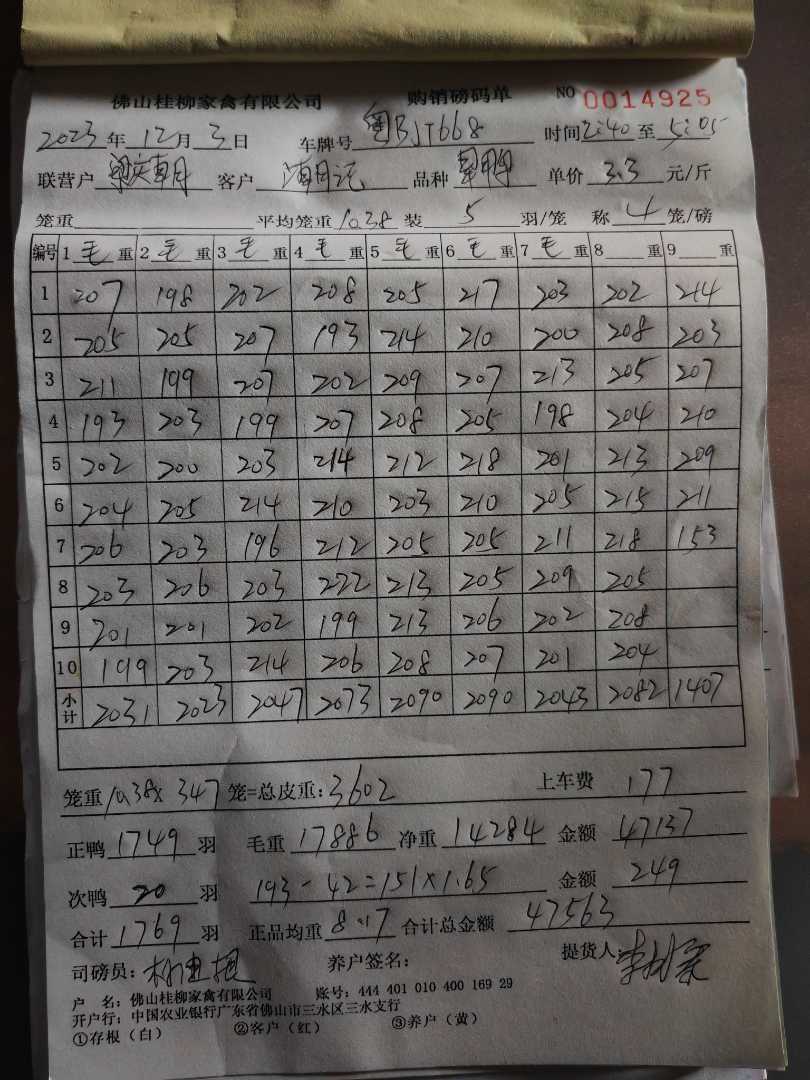 佛山桂柳家禽有限公司 购销磅码单 NO 0014925
2023年12月3日 车牌号 粤BJT668 时间2:40至5:05
联营户 客户 品种 单价 3.3 元/斤
笼重 平均笼重 10.38 装 5 羽/笼 称 4 笼/磅
编号 1 毛 重 2 毛 重 3 毛 重 4 毛 重 5 毛 重 6 毛 重 7 毛 重 8 重 9 重
1 207 198 202 208 205 217 203 202 214
2 205 205 207 193 214 210 200 208 203
3 211 199 207 202 209 207 213 205 207
4 193 203 199 207 208 205 198 204 210
5 202 200 203 214 212 218 201 213 209
6 204 205 214 210 203 210 205 215 211
7 206 203 196 212 205 205 211 218 153
8 203 206 203 222 213 205 209 205
9 201 201 202 199 213 206 202 208
10 199 203 214 206 208 207 201 204
小计 2031 2023 2047 2073 2090 2090 2043 2082 1407
笼重 10.38× 347 笼=总皮重: 3602 上车费 177
正鸭 1749 羽 毛重 17886 净重 14284 金额 47137
次鸭 20 羽 193-42=151×1.65 金额 249
合计 1769 羽 正品均重 8.17 合计总金额 47563
司磅员: 养户签名: 提货人:
户 名: 佛山桂柳家禽有限公司 账号: 444 401 010 400 169 29
开户行: 中国农业银行广东省佛山市三水区三水支行
①存根（白） ②客户（红） ③养户（黄）